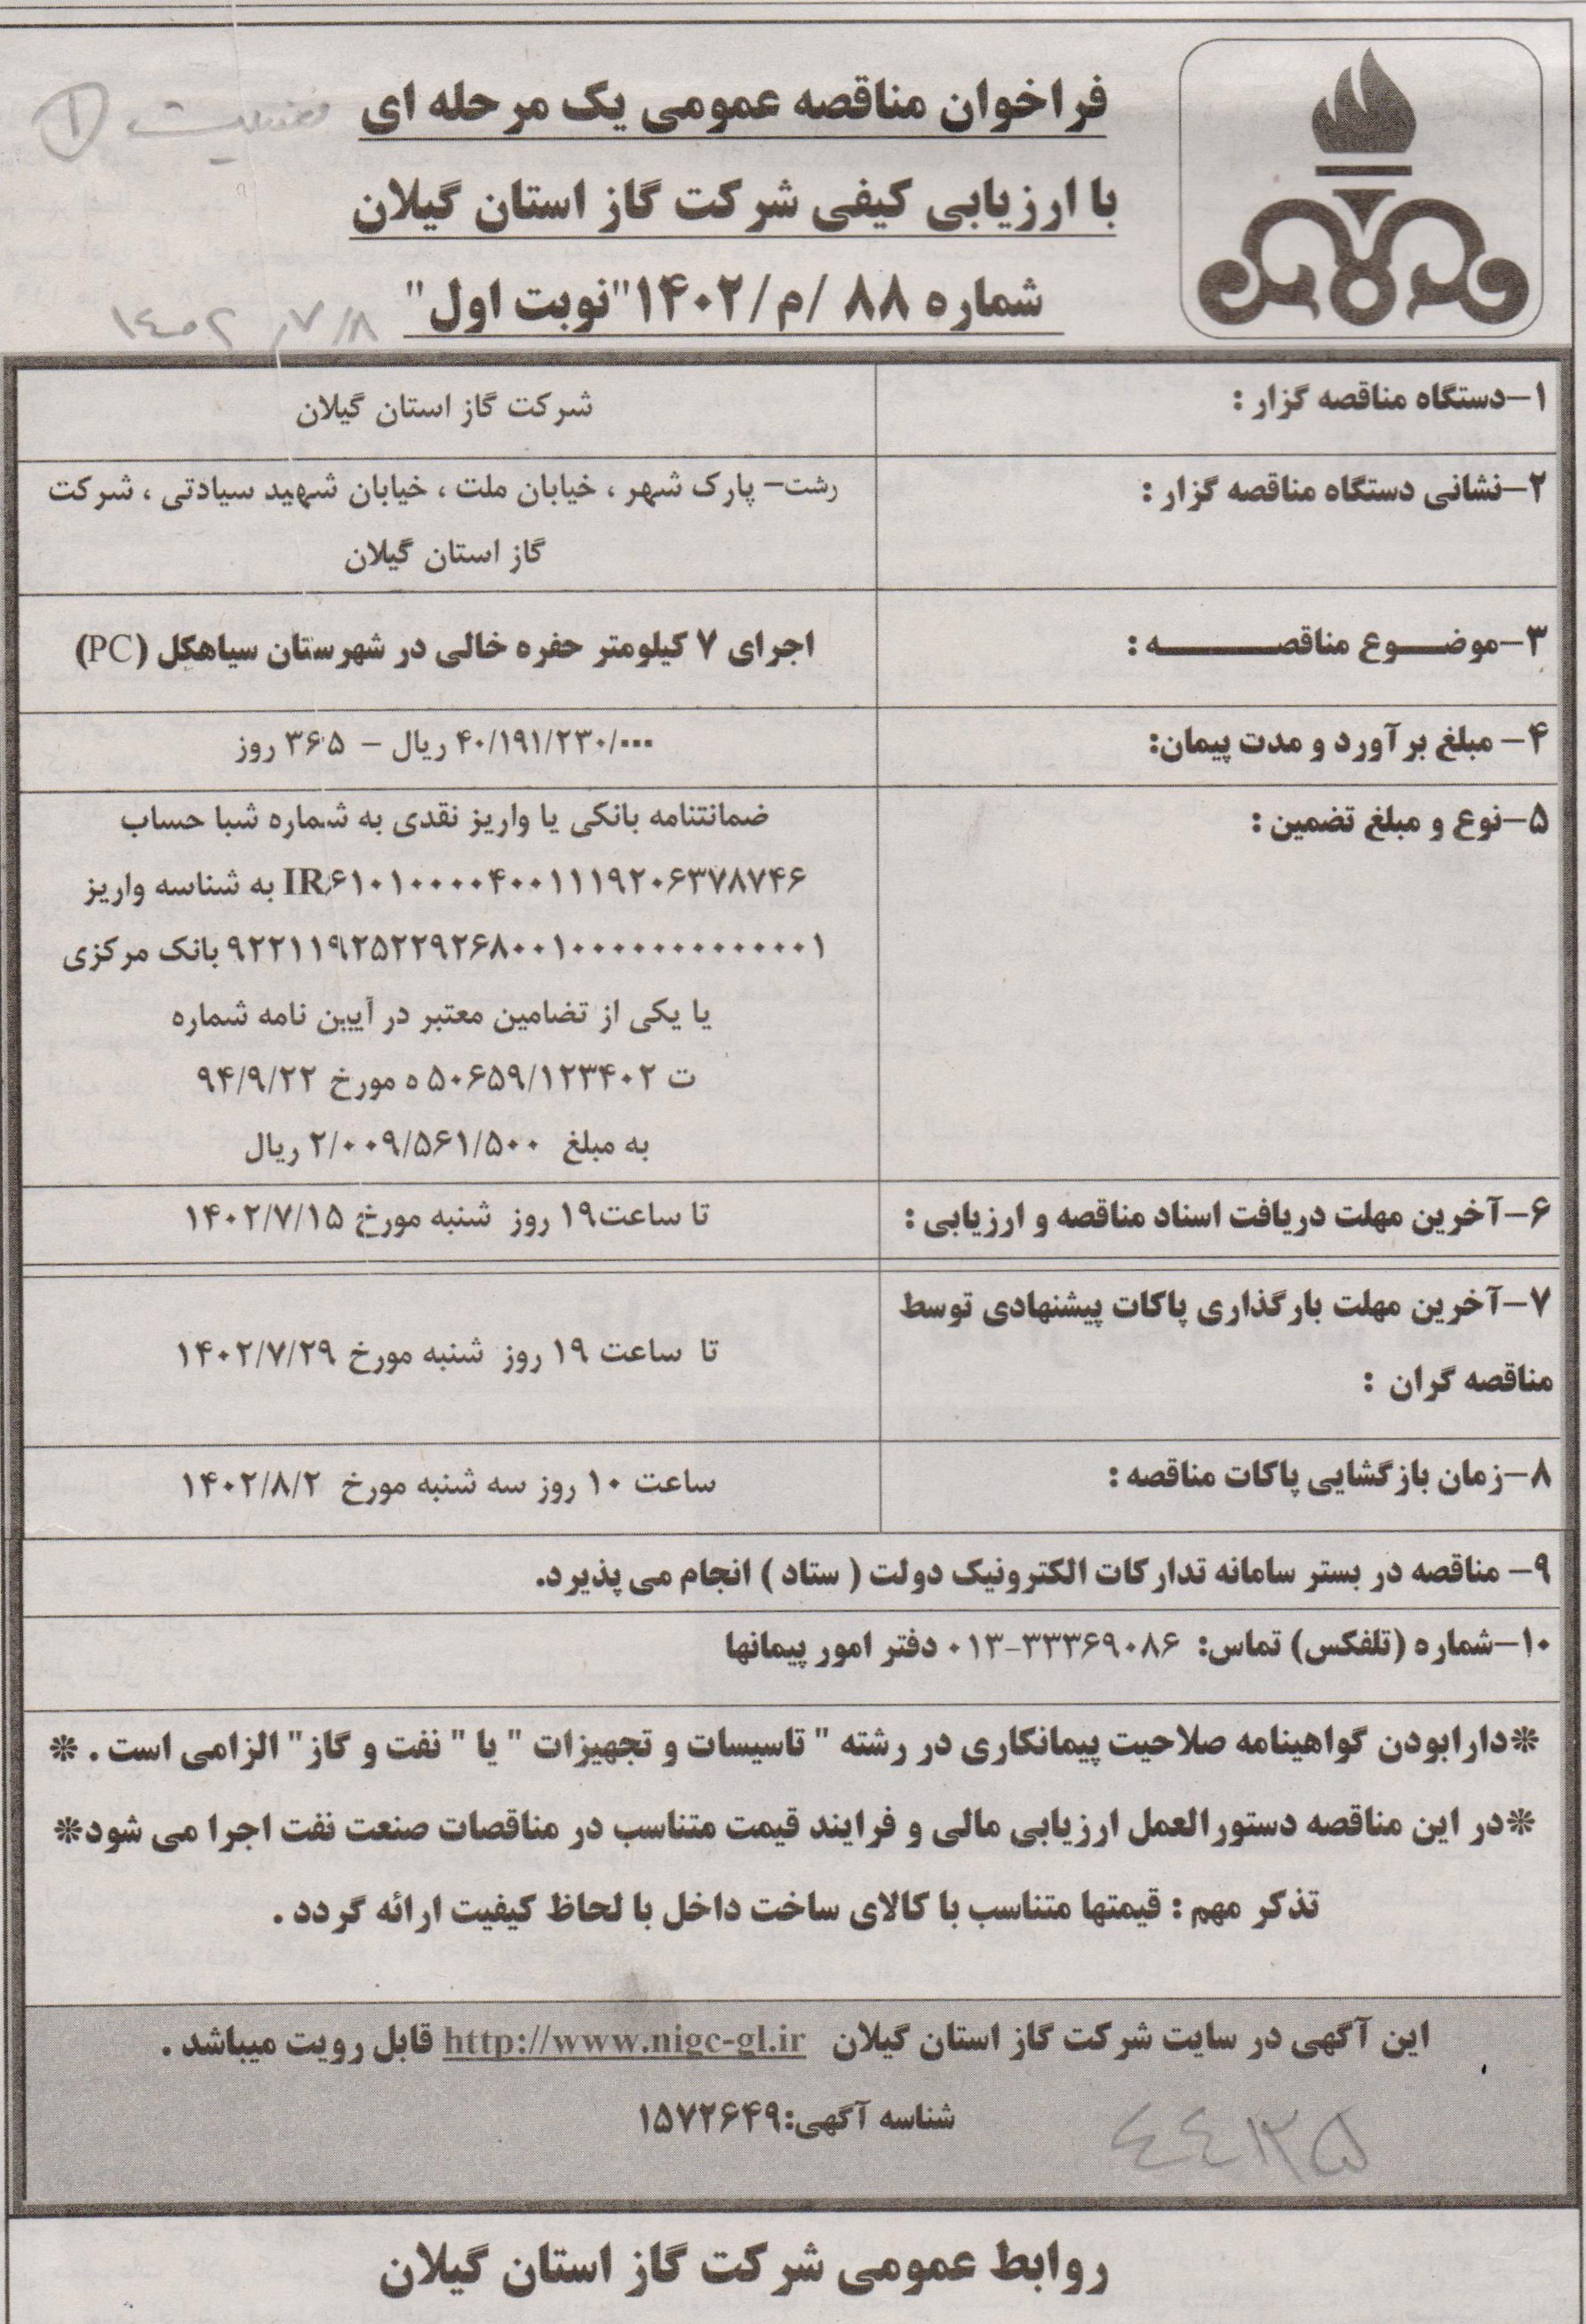 فراخوان مناقصه عمومی یک مرحله ای
با ارزیابی کیفی شرکت گاز استان گیلان
شماره ۸۸ /م/۱۴۰۲"نوبت اول"
۱۴۰۲/۷/۸
۱
۱-دستگاه مناقصه گزار :
شرکت گاز استان گیلان
۲-نشانی دستگاه مناقصه گزار :
رشت- پارک شهر ، خیابان ملت ، خیابان شهید سیادتی ، شرکت
گاز استان گیلان
۳-موضـــوع مناقصـــــــــه :
اجرای ۷ کیلومتر حفره خالی در شهرستان سیاهکل (PC)
۴- مبلغ برآورد و مدت پیمان:
۴۰/۱۹۱/۲۳۰/۰۰۰ ریال - ۳۶۵ روز
۵-نوع و مبلغ تضمین :
ضمانتنامه بانکی یا واریز نقدی به شماره شبا حساب
IR۶۱۰۱۰۰۰۰۴۰۰۱۱۱۹۲۰۶۳۷۸۷۴۶ به شناسه واریز
۹۲۲۱۱۹۲۵۲۲۹۲۶۸۰۰۱۰۰۰۰۰۰۰۰۰۰۰۰۰۱ بانک مرکزی
یا یکی از تضامین معتبر در آیین نامه شماره
ت ۵۰۶۵۹/۱۲۳۴۰۲ ه مورخ ۹۴/۹/۲۲
به مبلغ ۲/۰۰۹/۵۶۱/۵۰۰ ریال
۶-آخرین مهلت دریافت اسناد مناقصه و ارزیابی :
تا ساعت۱۹ روز شنبه مورخ ۱۴۰۲/۷/۱۵
۷-آخرین مهلت بارگذاری پاکات پیشنهادی توسط
مناقصه گران :
تا ساعت ۱۹ روز شنبه مورخ ۱۴۰۲/۷/۲۹
۸-زمان بازگشایی پاکات مناقصه :
ساعت ۱۰ روز سه شنبه مورخ ۱۴۰۲/۸/۲
۹- مناقصه در بستر سامانه تدارکات الکترونیک دولت ( ستاد ) انجام می پذیرد.
۱۰-شماره (تلفکس) تماس: ۳۳۳۶۹۰۸۶-۰۱۳ دفتر امور پیمانها
*دارابودن گواهینامه صلاحیت پیمانکاری در رشته " تاسیسات و تجهیزات " یا " نفت و گاز" الزامی است . *
*در این مناقصه دستورالعمل ارزیابی مالی و فرایند قیمت متناسب در مناقصات صنعت نفت اجرا می شود*
تذکر مهم : قیمتها متناسب با کالای ساخت داخل با لحاظ کیفیت ارائه گردد .
این آگهی در سایت شرکت گاز استان گیلان http://www.nigc-gl.ir قابل رویت میباشد .
شناسه آگهی:۱۵۷۲۶۴۹
روابط عمومی شرکت گاز استان گیلان